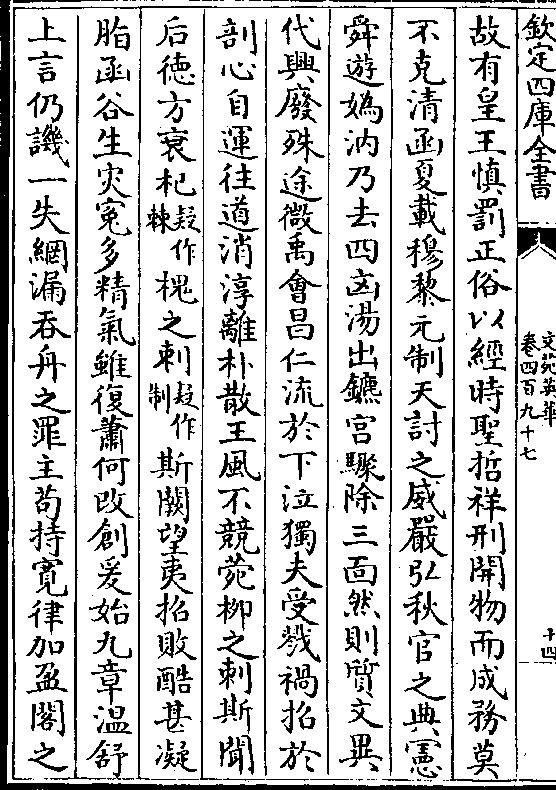 欽定四庫全書
文苑英華
卷四百九十七
十四
故有皇王慎罰正俗以經時聖哲祥刑開物而成務莫
不克清函夏載穆黎元制天討之威嚴弘秋官之典憲
舜遊嬀汭乃去四凶湯出鑣宮驟除三面然則質文異
代興廢殊途微禹會昌仁流於下泣獨夫受戮禍招於
剖心自運往道消淳離朴散王風不競菀柳之刺斯聞
后徳方衰杞疑作棘槐之刺疑作制斯闕望夷招敗酷甚凝
脂函谷生灾寃多精氣雖復蕭何改創爰始九章溫舒
上言仍譏一失網漏吞舟之罪主苟持寛律加盈閣之